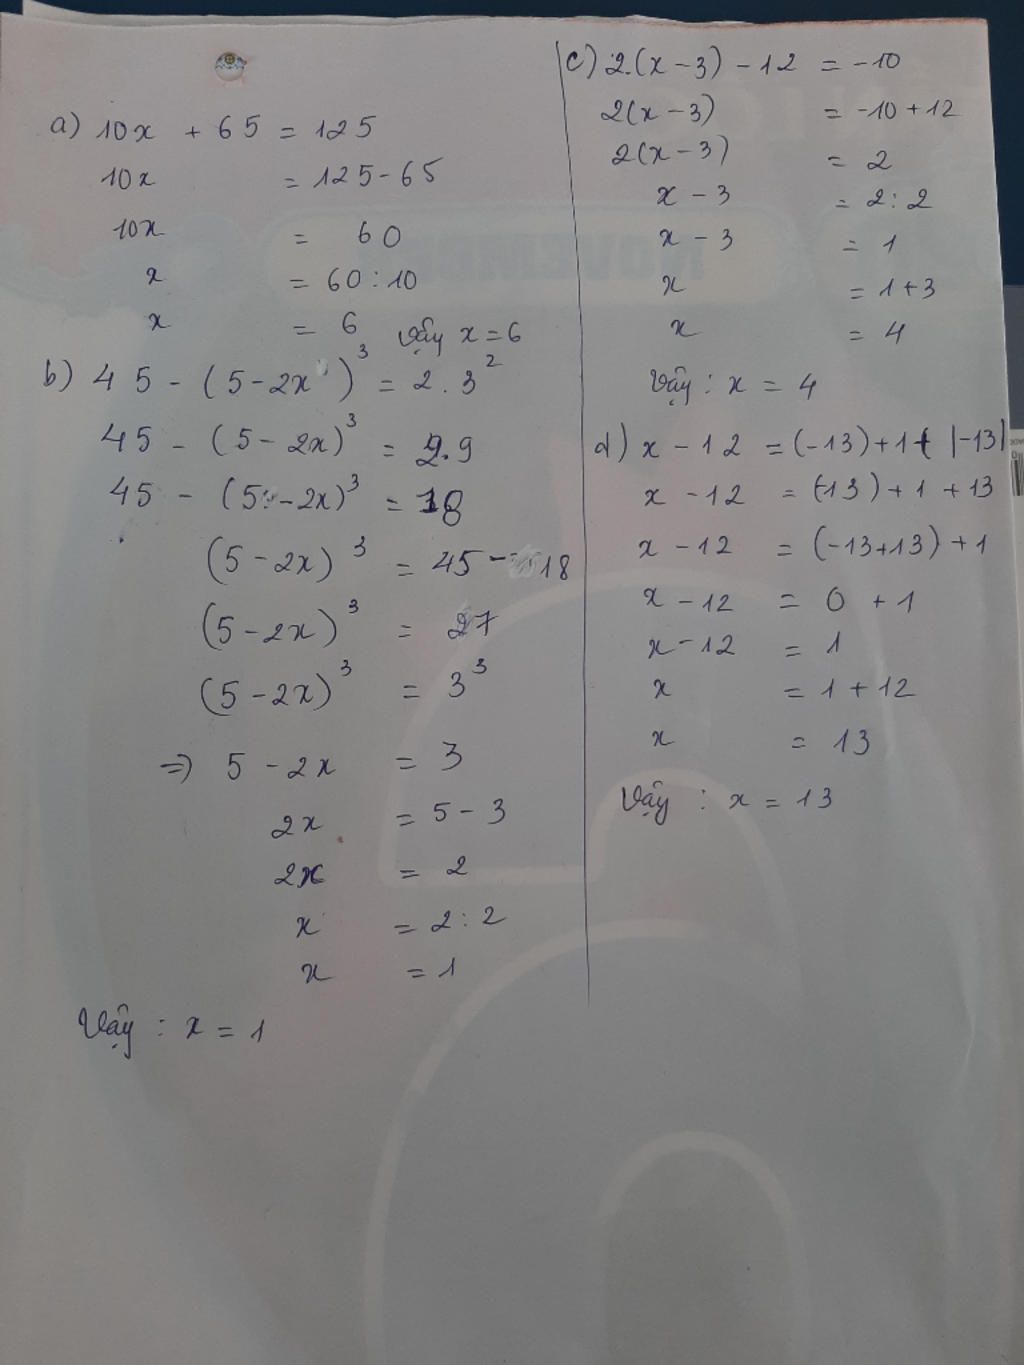 a) 10x + 65 = 125
10x = 125-65
10x = 60
x = 60:10
x = 6 Vậy x = 6
b) 45 - (5-2x)³ = 2.3²
45 - (5-2x)³ = 2.9
45 - (5-2x)³ = 18
(5-2x)³ = 45-18
(5-2x)³ = 27
(5-2x)³ = 3³
=> 5-2x = 3
2x = 5-3
2x = 2
x = 2:2
x = 1
Vậy : x = 1
c) 2.(x-3) - 12 = -10
2(x-3) = -10+12
2(x-3) = 2
x-3 = 2:2
x-3 = 1
x = 1+3
x = 4
Vậy : x = 4
d) x-12 = (-13)+1+ |-13|
x-12 = (-13)+1+13
x-12 = (-13+13)+1
x-12 = 0+1
x-12 = 1
x = 1+12
x = 13
Vậy : x = 13
NOVEMBE